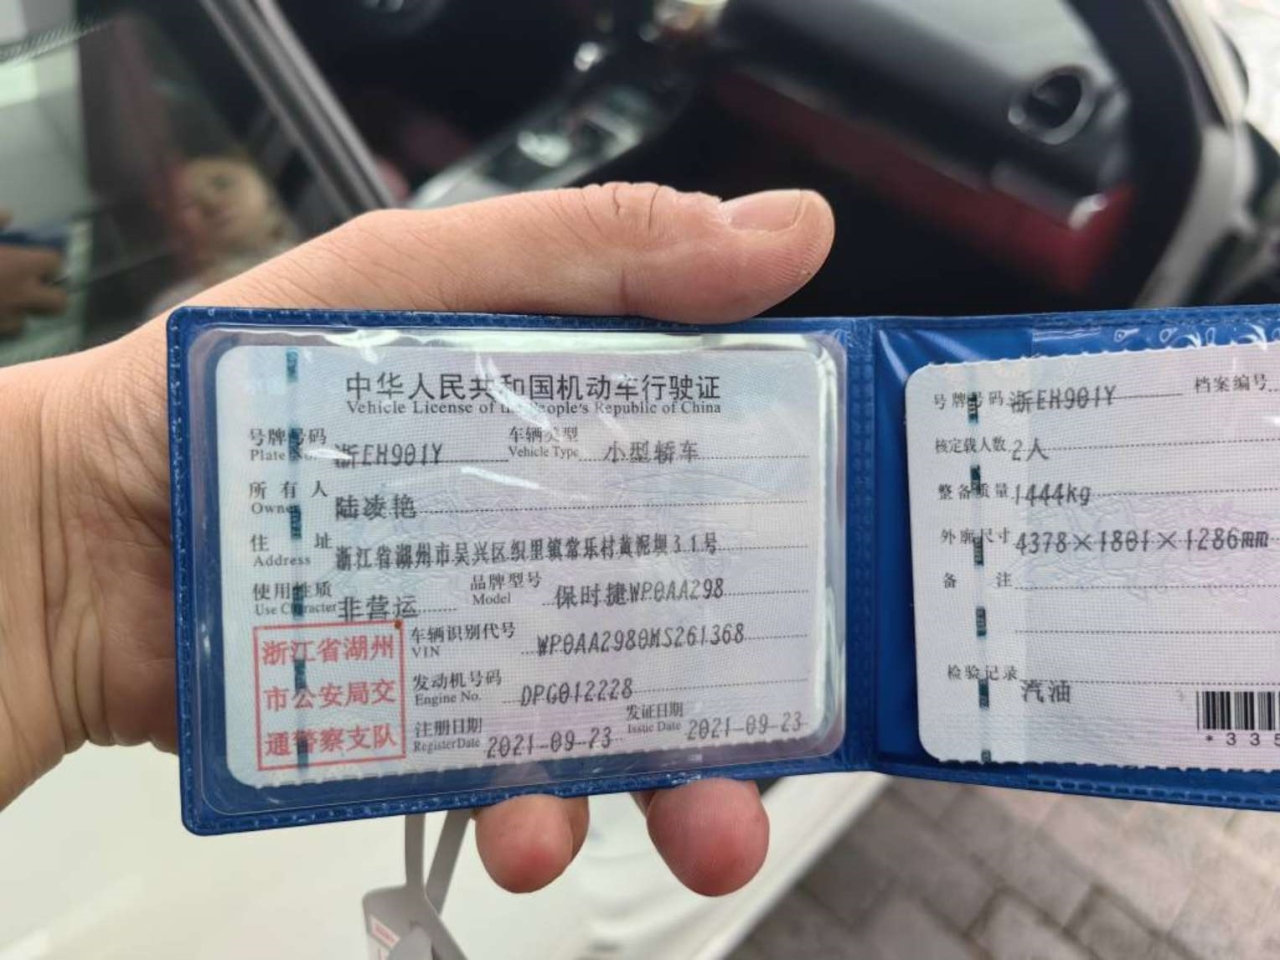 中华人民共和国机动车行驶证
Vehicle License of the People's Republic of China
号牌号码 浙EH901Y 车辆类型 小型轿车
Plate No. Vehicle Type
所有人 陆凌艳
Owner
住址 浙江省湖州市吴兴区织里镇常乐村黄泥坝31号
Address
使用性质 非营运 品牌型号 保时捷WP0AA298
Use Character Model
浙江省湖州
市公安局交
通警察支队
车辆识别代号 WP0AA2980MS261368
VIN
发动机号码 DPG012228
Engine No.
注册日期 2021-09-23 发证日期 2021-09-23
Register Date Issue Date
号牌号码 浙EH901Y 档案编号
核定载人数 2人
整备质量 1444kg
外廓尺寸 4378×1801×1286mm
备注
检验记录
汽油
*335